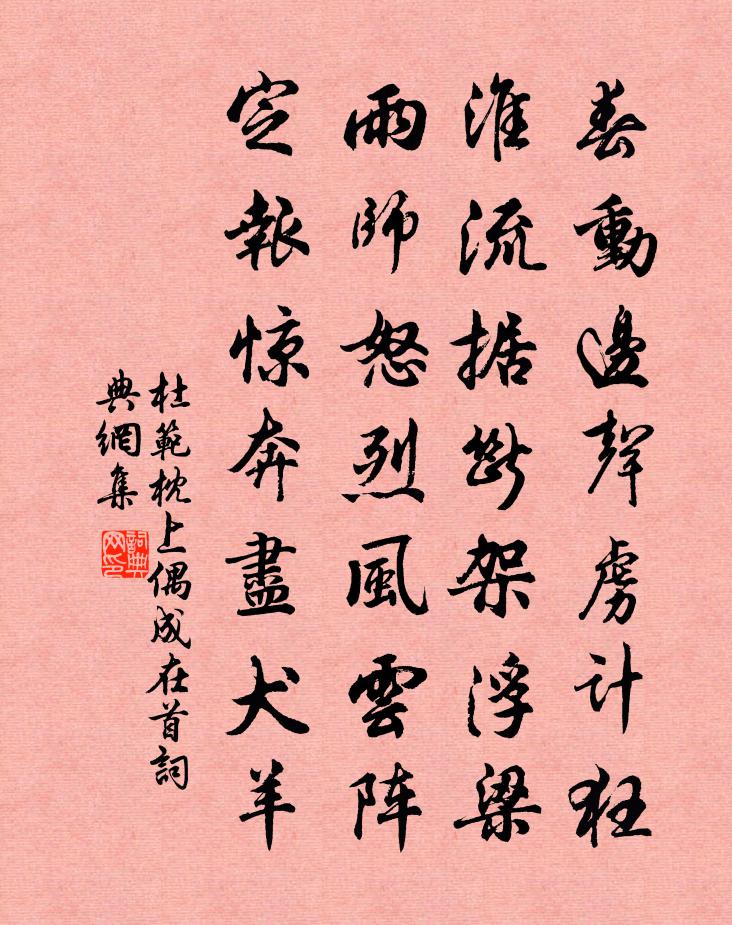 春動邊聲虜計狂
淮流据斷架浮梁
雨師怒烈風雲阵
定報惊奔盡犬羊
杜範枕上偶成在首詞
典網集
詞典
网印